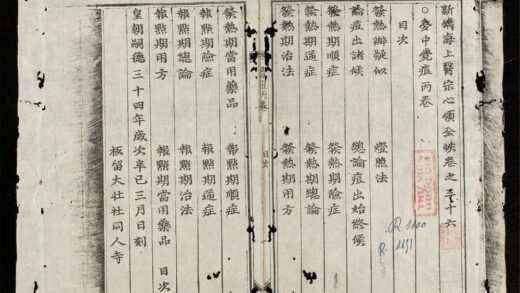 新鐫海上醫宗心領全帙卷之三十六
○夢中覺痘丙卷
目次
發熱辨疑似 燈照法
論痘出諸候 總論痘出始終候
發熱期順症 發熱期險症
發熱期逆症 發熱期總論
發熱期治法 發熱期用方
丙卷 目次
發熱期當用藥品 報點期順症
報點期險症 報點期逆症
報點期總論 報點期治法
報點期用方 報點期當用藥品 目次
皇朝嗣德三十四年歲次辛巳三月日刻
板留大壯社同人寺
R 1100